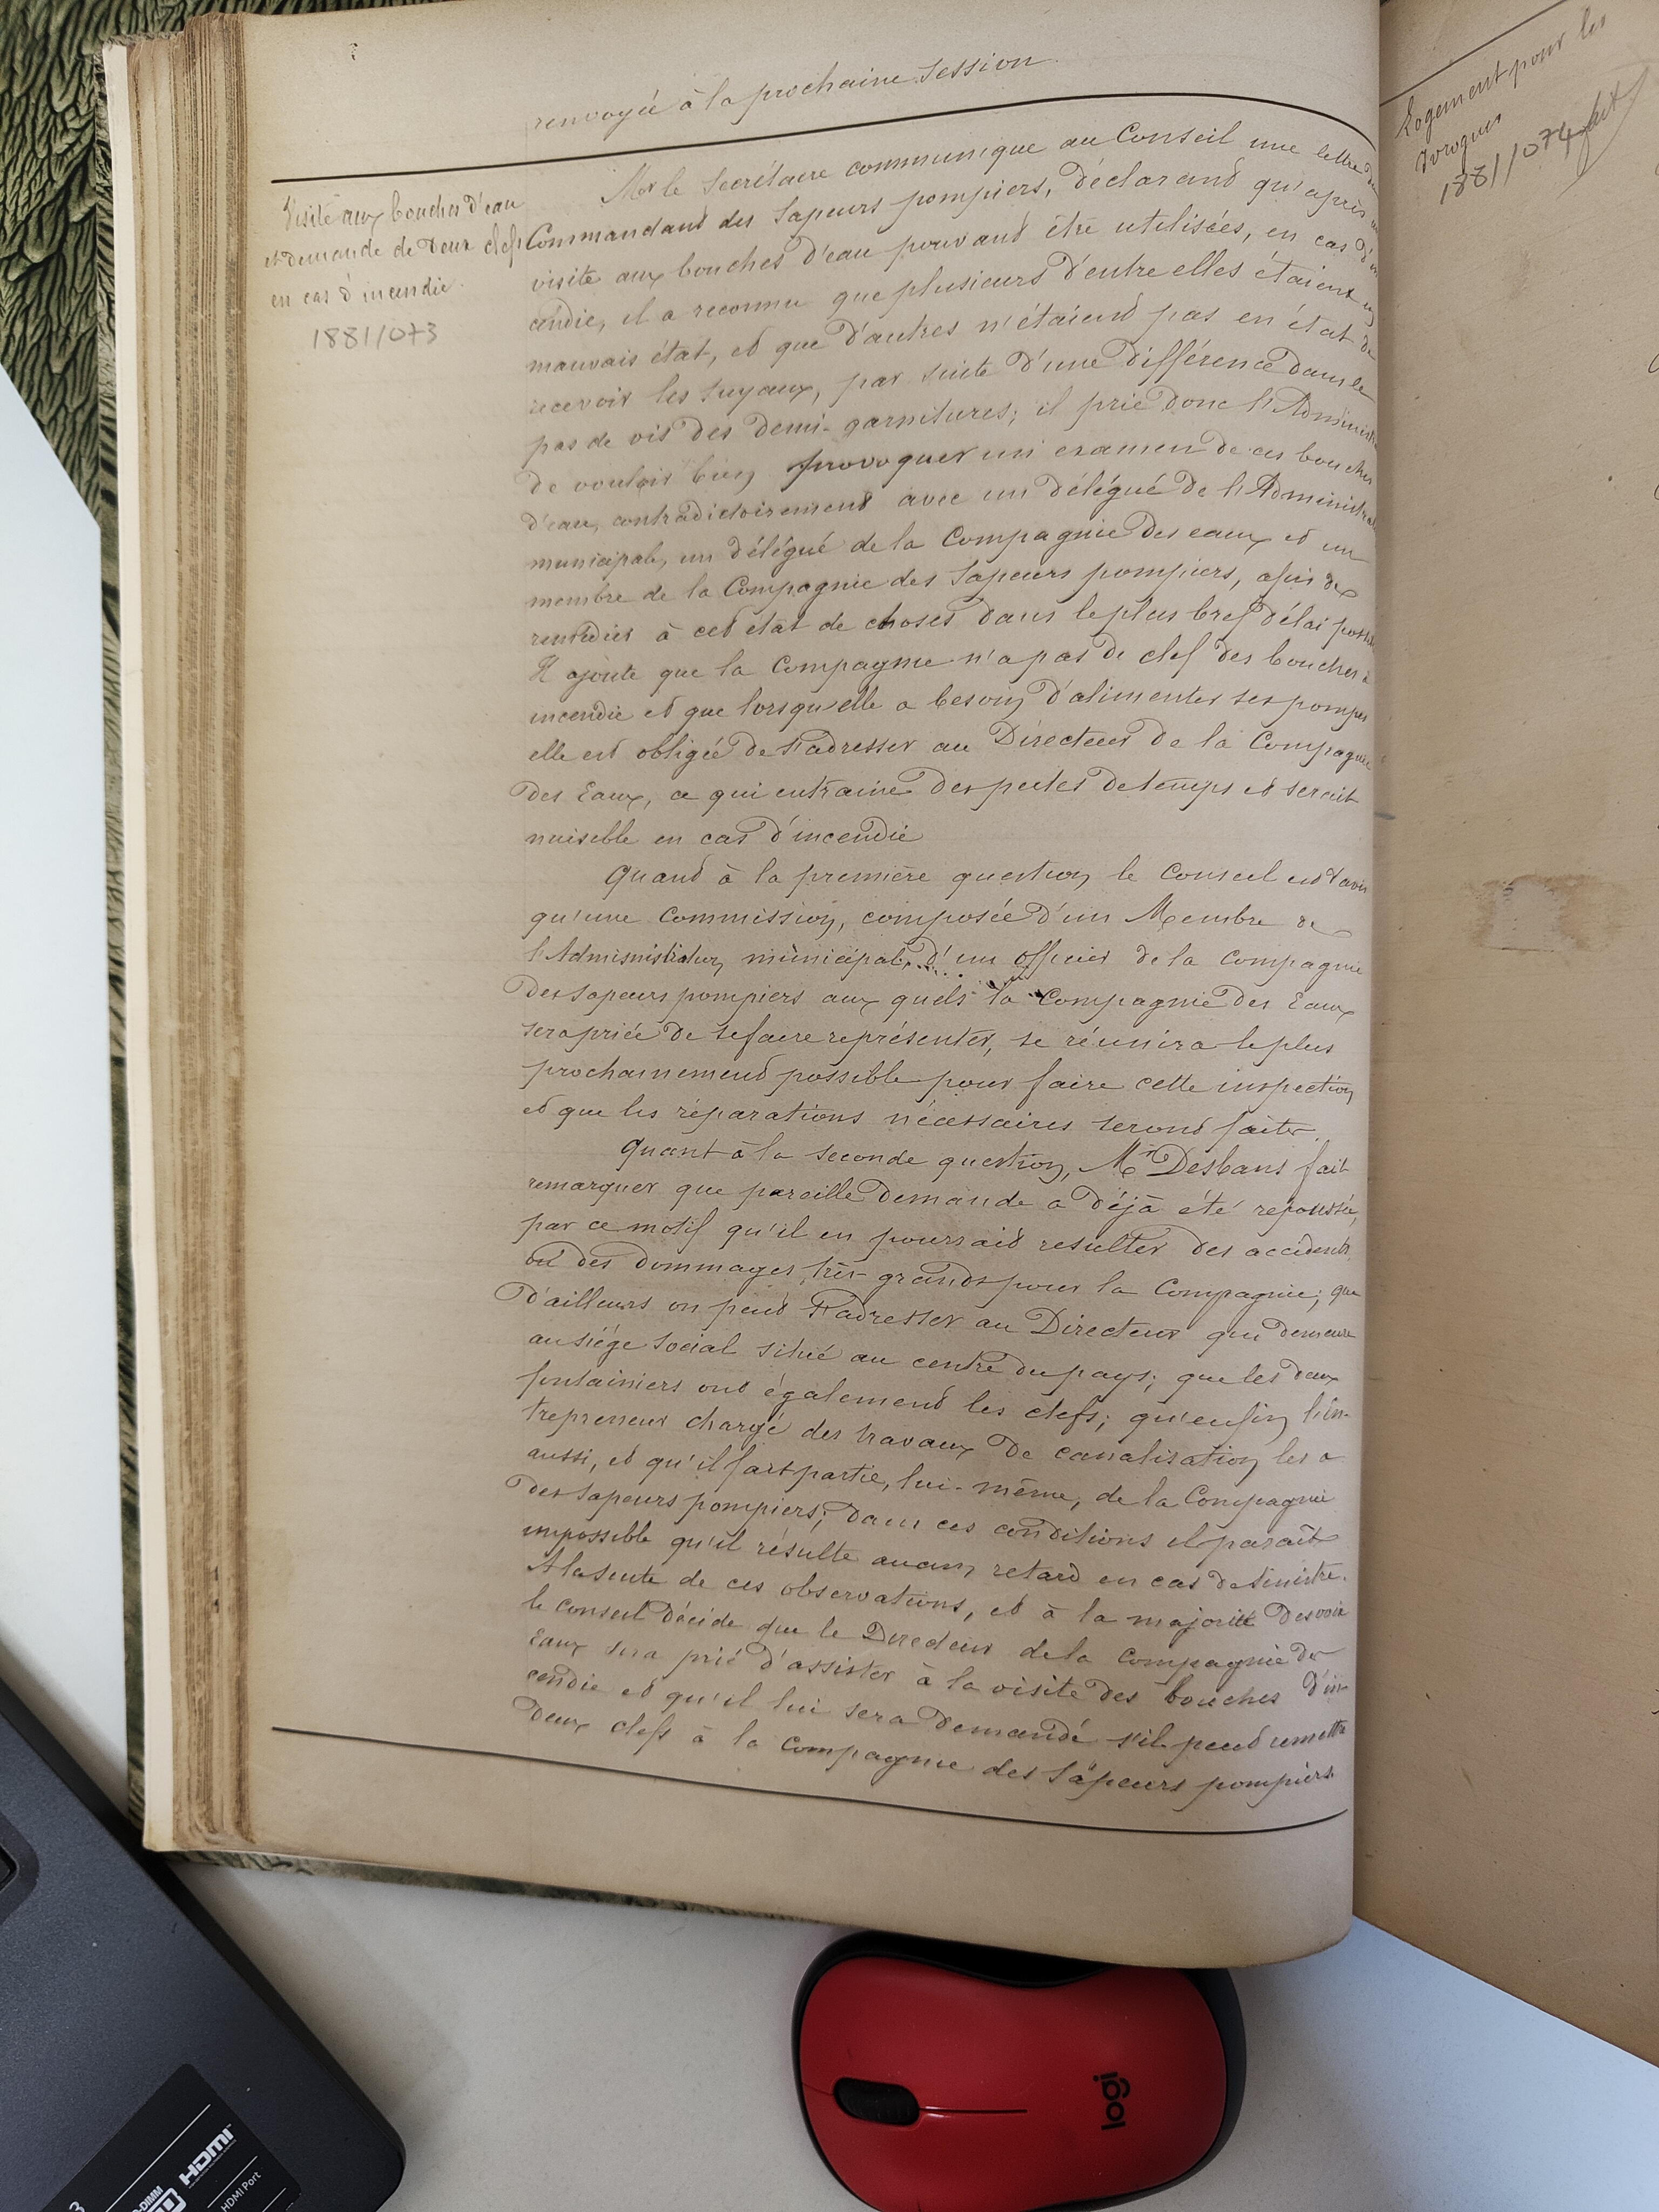 renvoyée à la prochaine session
Visite aux bouches d'eau
et demande de deux clefs
en cas d'incendie.
1881/073
Mr le Secrétaire communique au Conseil une lettre du
Commandant des Sapeurs pompiers, déclarant qu'après
visite aux bouches d'eau pouvant être utilisées, en cas d'in
cendie, il a reconnu que plusieurs d'entre elles étaient en
mauvais état, et que d'autres n'étaient pas en état de
recevoir les tuyaux, par suite d'une différence dans le
pas de vis des demi-garnitures; il prie donc l'Administ
de vouloir bien provoquer un examen de ces bouches
d'eau, contradictoirement avec un délégué de l'Administra
municipale, un délégué de la Compagnie des eaux et un
membre de la Compagnie des Sapeurs pompiers, afin de
remédier à cet état de choses dans le plus bref délai possi
Il ajoute que la Compagnie n'a pas de clef des bouches à
incendie et que lorsqu'elle a besoin d'alimenter ses pompes
elle est obligée de s'adresser au Directeur de la Compagnie
des Eaux, ce qui entraine des pertes de temps et serait
nuisible en cas d'incendie
Quand à la première question le Conseil est d'avis
qu'une Commission, composée d'un Membre de
l'Administration municipale, d'un officier de la Compagnie
des Sapeurs pompiers aux quels la Compagnie des Eaux
sera priée de se faire représenter, se réunira le plus
prochainement possible pour faire cette inspection
et que les réparations nécessaires seront faites.
Quant à la seconde question, Mr Desbans fait
remarquer que pareille demande a déjà été repoussée,
par ce motif qu'il en pourrait resulter des accidents
ou des dommages très-grands pour la Compagnie; que
d'ailleurs on peut s'adresser au Directeur qui demeure
au siège social situé au centre du pays; que les deux
fontainiers ont également les clefs; qu'enfin l'en-
trepreneur chargé des travaux de canalisation les a
aussi, et qu'il fait partie, lui-même, de la Compagnie
des Sapeurs pompiers; dans ces conditions il paraît
impossible qu'il résulte aucun retard en cas de sinistre.
A la suite de ces observations, et à la majorité des voix
le conseil décide que le Directeur de la Compagnie des
Eaux sera prié d'assister à la visite des bouches d'in-
cendie et qu'il lui sera demandé s'il peut remettre
deux clefs à la Compagnie des Sapeurs pompiers.
Logement pour les
1881/074
logi
HDMI
HDMI Port